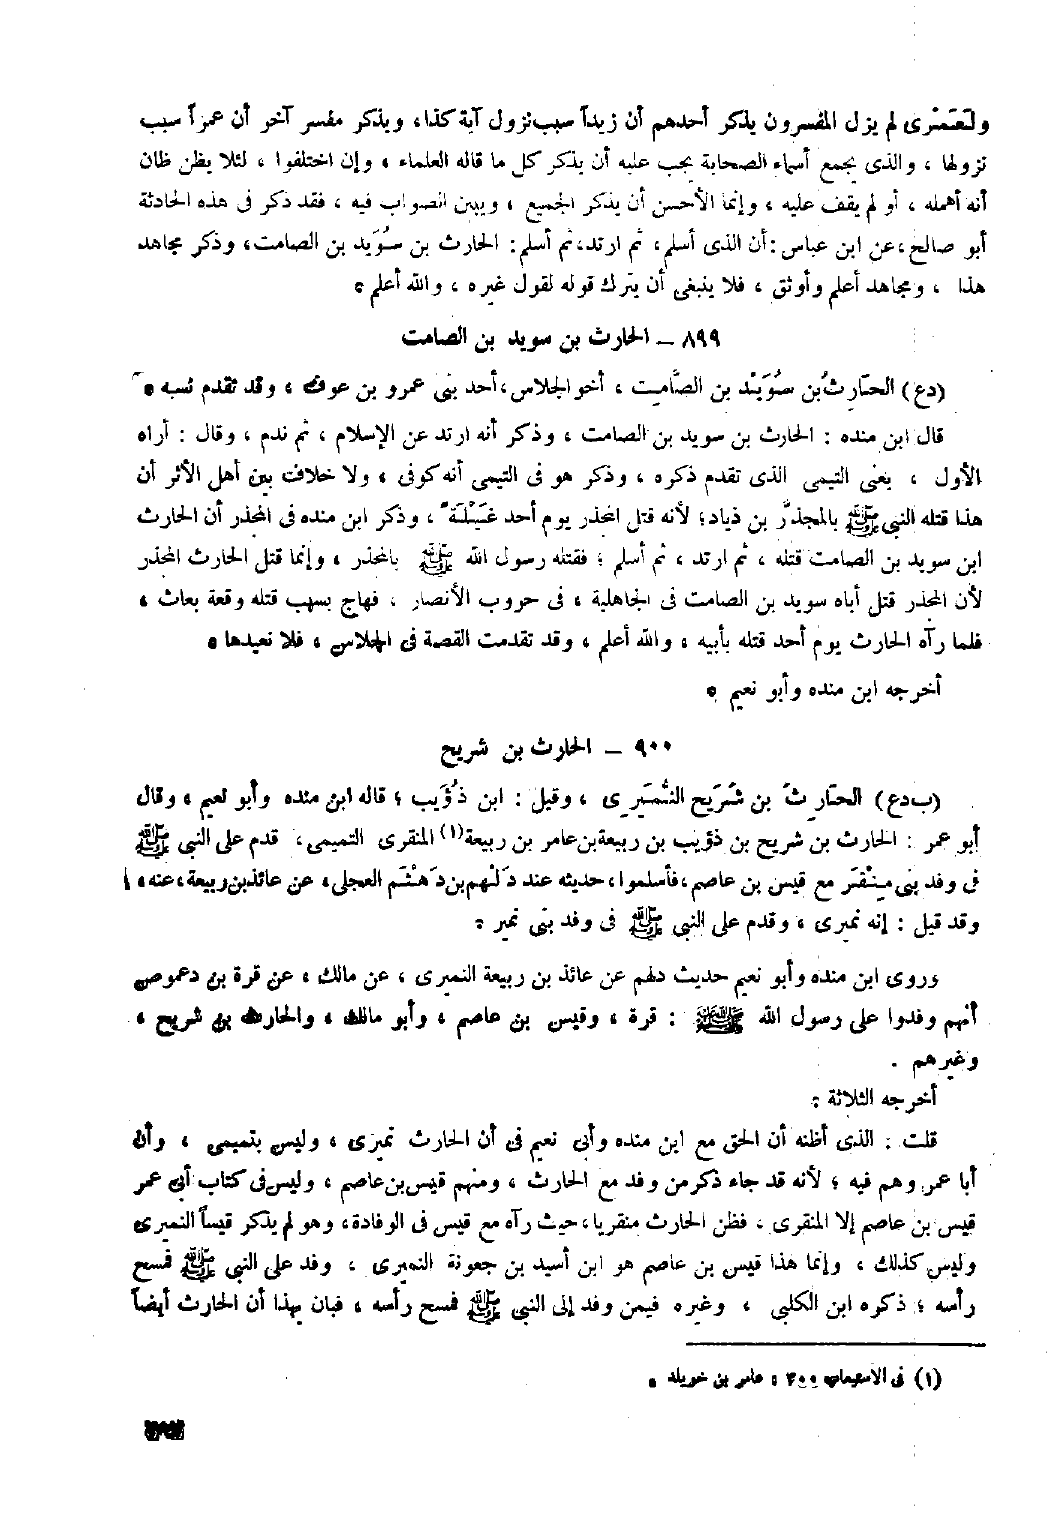 ولَعَمْرى لم يزل المفسرون يذكر أحدهم أن زيداً سبب نزول آية كذا، ويذكر مفسر آخر أن عمراً سبب
نزولها ، والذى يجمع أسماء الصحابة يجب عليه أن يذكر كل ما قاله العلماء ، وإن اختلفوا ، لئلا يظن ظان
أنه أهمله ، أو لم يقف عليه ، وإنما الأحسن أن يذكر الجميع ، ويبين الصواب فيه ، فقد ذكر فى هذه الحادثة
أبو صالح ، عن ابن عباس : أن الذى أسلم ، ثم ارتد، ثم أسلم : الحارث بن سُوَيد بن الصامت، وذكر مجاهد
هذا ، ومجاهد أعلم وأوثق ، فلا ينبغى أن يترك قوله لقول غيره ، والله أعلم .
٨٩٩ – الحارث بن سويد بن الصامت
(دع) الحَارِثُ بن سُوَيْد بن الصَّامِت ، أخو الجلاس، أحد بنى عمرو بن عوف ، وقد تقدم نسبه .
قال ابن منده : الحارث بن سويد بن الصامت ، وذكر أنه ارتد عن الإسلام ، ثم ندم ، وقال : أراه
الأول ، يعنى التيمى الذى تقدم ذكره ، وذكر هو فى التيمى أنه كوفى ، ولا خلاف بين أهل الأثر أن
هذا قتله النبى ﷺ بالمجذَّر بن ذياد؛ لأنه قتل المجذر يوم أحد غَيْلَة ، وذكر ابن منده فى المجذر أن الحارث
ابن سويد بن الصامت قتله ، ثم ارتد ، ثم أسلم ؛ فقتله رسول الله ﷺ بالمجذر ، وإنما قتل الحارث المجذر
لأن المجذر قتل أباه سويد بن الصامت فى الجاهلية ، فى حروب الأنصار ، فهاج بسبب قتله وقعة بعاث ،
فلما رآه الحارث يوم أحد قتله بأبيه ، والله أعلم ، وقد تقدمت القصة فى الجلاس ، فلا نعيدها .
أخرجه ابن منده وأبو نعيم .
٩٠٠ – الحارث بن شريح
(ب دع) الحَارِثُ بن شُرَيح النُّمَيْرِى ، وقيل : ابن ذُؤَيب ؛ قاله ابن منده وأبو نعيم ، وقال
أبو عمر : الحارث بن شريح بن ذؤيب بن ربيعة بن عامر بن ربيعة (١) المنقرى التميمى، قدم على النبى ﷺ
فى وفد بنى مِنْقَر مع قيس بن عاصم ، فأسلموا ، حديثه عند دَلْهم بن دَهْثَم العجلى، عن عائذ بن ربيعة، عنه، ا
وقد قيل : إنه نميرى ، وقدم على النبى ﷺ فى وفد بنى نمير .
وروى ابن منده وأبو نعيم حديث دلهم عن عائذ بن ربيعة النميرى ، عن مالك ، عن قرة بن دعموص
أنهم وفدوا على رسول الله ﷺ : قرة ، وقيس بن عاصم ، وأبو مالك ، والحارث بن شريح ،
وغيرهم .
أخرجه الثلاثة .
قلت : الذى أظنه أن الحق مع ابن منده وأبى نعيم فى أن الحارث نميرى ، وليس بتميمى ، وأن
أبا عمر وهم فيه ؛ لأنه قد جاء ذكر من وفد مع الحارث ، ومنهم قيس بن عاصم ، وليس فى كتاب أبى عمر
قيس بن عاصم إلا المنقرى ، فظن الحارث منقريا، حيث رآه مع قيس فى الوفادة، وهو لم يذكر قيساً النميرى
وليس كذلك ، وإنما هذا قيس بن عاصم هو ابن أسيد بن جعونة النميرى ، وفد على النبى ﷺ فمسح
رأسه ؛ ذكره ابن الكلبى ، وغيره فيمن وفد إلى النبى ﷺ فمسح رأسه ، فبان بهذا أن الحارث أيضاً
(١) فى الاستيعاب ٣٠٠ : عامر بن خويلد .